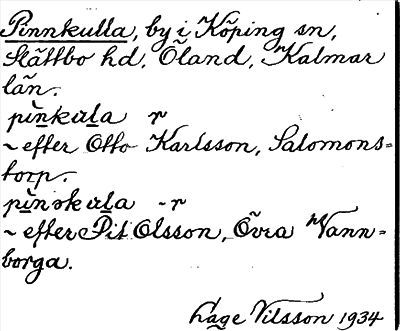 Pinnkulla, by i Köping sn,
Slättbo hd, Öland, Kalmar
län.
pìnkula r
~ efter Otto Karlsson, Salomons=
torp.
pìnəkula -r
~ efter Pit Olsson, Övra Vann=
borga.
Åage Nilsson 1934